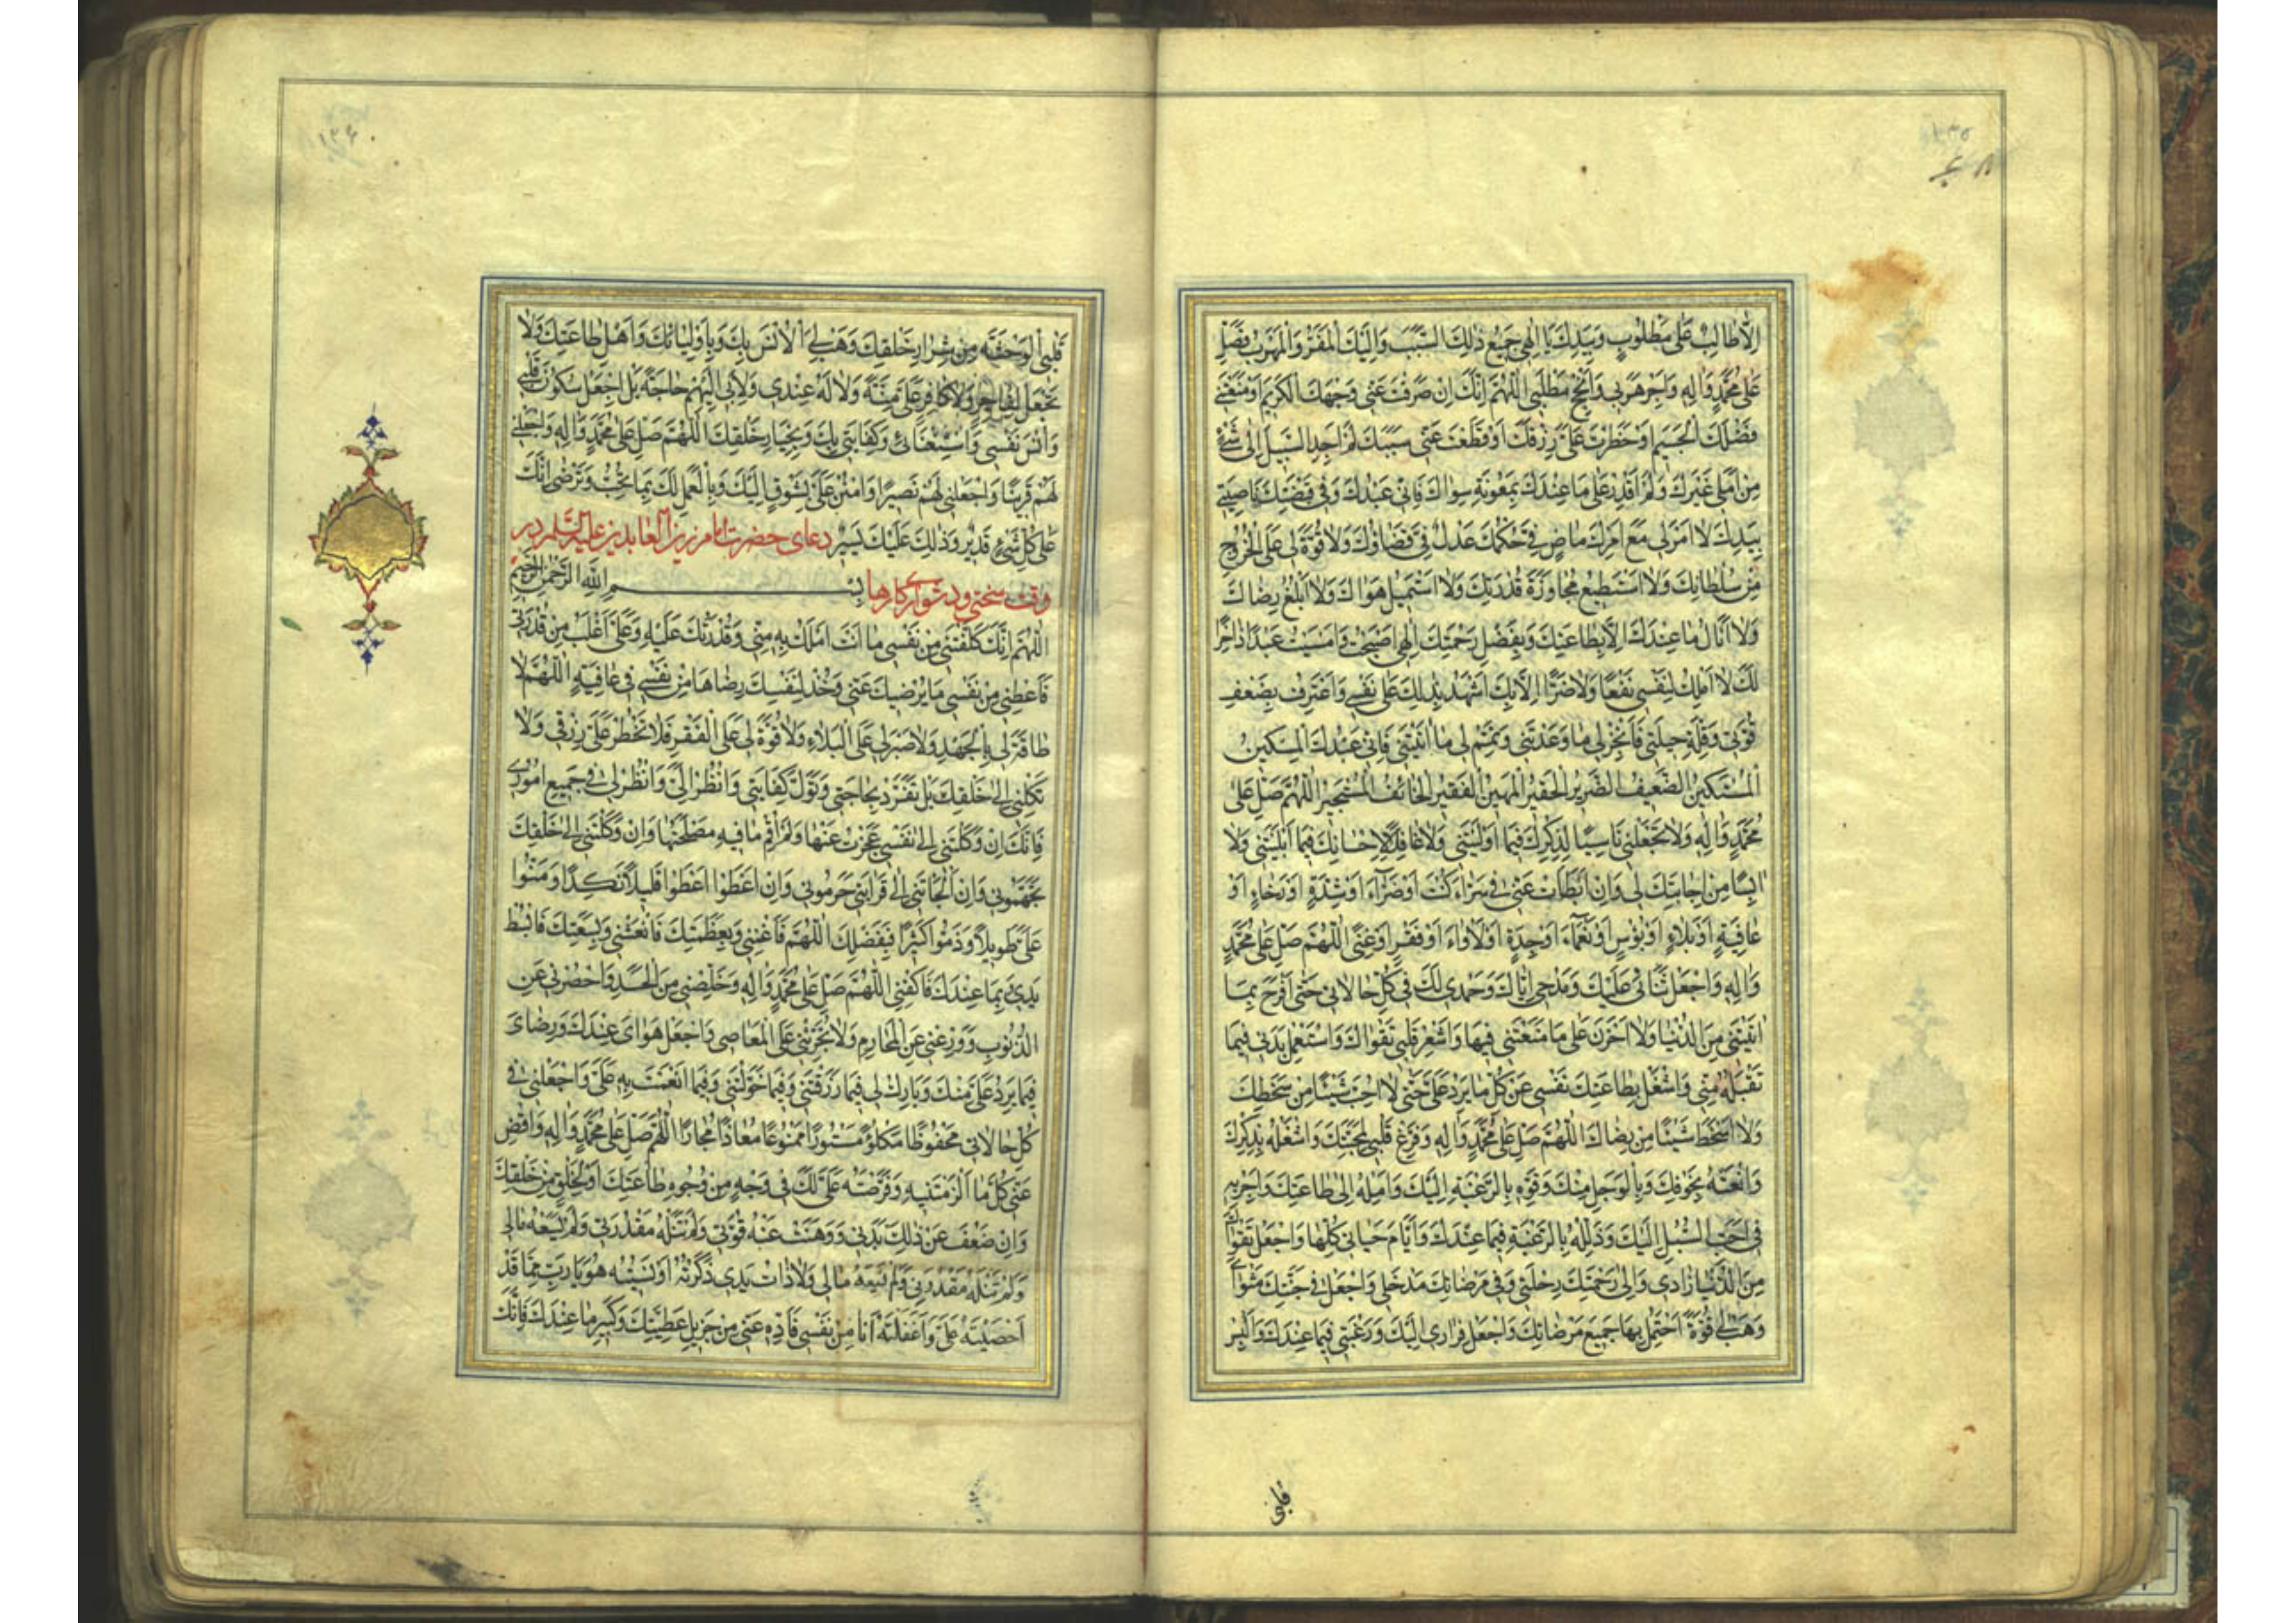 ١٣٥
اِلَّا طَالِبٌ عَلَى مَطْلُوبٍ وَبِيَدِكَ يَا اِلٰهِي جَمِيعُ ذٰلِكَ السَّبَبِ وَاِلَيْكَ الْمَفَرُّ وَالْمَهْرَبُ فَصَلِّ
عَلَى مُحَمَّدٍ وَاٰلِهِ وَاَجِرْ هَرَبِي وَاَنْجِحْ مَطْلَبِي اَللّٰهُمَّ اِنَّكَ اِنْ صَرَفْتَ عَنِّي وَجْهَكَ الْكَرِيمَ اَوْ مَنَعْتَنِي
فَضْلَكَ الْجَسِيمَ اَوْ حَظَرْتَ عَلَيَّ رِزْقَكَ اَوْ قَطَعْتَ عَنِّي سَبَبَكَ لَمْ اَجِدِ السَّبِيلَ اِلَى شَيْءٍ
مِنْ اَمَلِي غَيْرَكَ وَلَمْ اَقْدِرْ عَلَى مَا عِنْدَكَ بِمَعُونَةِ سِوَاكَ فَاِنِّي عَبْدُكَ وَفِي قَبْضَتِكَ نَاصِيَتِي
بِيَدِكَ لَا اَمْرَ لِي مَعَ اَمْرِكَ مَاضٍ فِيَّ حُكْمُكَ عَدْلٌ فِيَّ قَضَاؤُكَ وَلَا قُوَّةَ لِي عَلَى الْخُرُوجِ
مِنْ سُلْطَانِكَ وَلَا اَسْتَطِيعُ مُجَاوَزَةَ قُدْرَتِكَ وَلَا اَسْتَمِيلُ هَوَاكَ وَلَا اَبْلُغُ رِضَاكَ
وَلَا اَنَالُ مَا عِنْدَكَ اِلَّا بِطَاعَتِكَ وَبِفَضْلِ رَحْمَتِكَ اِلٰهِي اَصْبَحْتُ وَاَمْسَيْتُ عَبْدًا دَاخِرًا
لَكَ لَا اَمْلِكُ لِنَفْسِي نَفْعًا وَلَا ضَرًّا اِلَّا بِكَ اَشْهَدُ بِذٰلِكَ عَلَى نَفْسِي وَاَعْتَرِفُ بِضَعْفِ
قُوَّتِي وَقِلَّةِ حِيلَتِي فَاَنْجِزْ لِي مَا وَعَدْتَنِي وَتَمِّمْ لِي مَا اٰتَيْتَنِي فَاِنِّي عَبْدُكَ الْمِسْكِينُ
الْمُسْتَكِينُ الضَّعِيفُ الضَّرِيرُ الْحَقِيرُ الْمَهِينُ الْفَقِيرُ الْخَائِفُ الْمُسْتَجِيرُ اَللّٰهُمَّ صَلِّ عَلَى
مُحَمَّدٍ وَاٰلِهِ وَلَا تَجْعَلْنِي نَاسِيًا لِذِكْرِكَ فِيمَا اَوْلَيْتَنِي وَلَا غَافِلًا لِاِحْسَانِكَ فِيمَا اَبْلَيْتَنِي وَلَا
اٰيِسًا مِنْ اِجَابَتِكَ لِي وَاِنْ اَبْطَاَتْ عَنِّي فِي سَرَّاءَ كُنْتُ اَوْ ضَرَّاءَ اَوْ شِدَّةٍ اَوْ رَخَاءٍ اَوْ
عَافِيَةٍ اَوْ بَلَاءٍ اَوْ بُؤْسٍ اَوْ نَعْمَاءَ اَوْ جِدَةٍ اَوْ لَاْوَاءَ اَوْ فَقْرٍ اَوْ غِنًى اَللّٰهُمَّ صَلِّ عَلَى مُحَمَّدٍ
وَاٰلِهِ وَاجْعَلْ ثَنَائِي عَلَيْكَ وَمَدْحِي اِيَّاكَ وَحَمْدِي لَكَ فِي كُلِّ حَالَاتِي حَتَّى لَا اَفْرَحَ بِمَا
اٰتَيْتَنِي مِنَ الدُّنْيَا وَلَا اَحْزَنَ عَلَى مَا مَنَعْتَنِي فِيهَا وَاَشْعِرْ قَلْبِي تَقْوَاكَ وَاسْتَعْمِلْ بَدَنِي فِيمَا
تَقْبَلُهُ مِنِّي وَاشْغَلْ بِطَاعَتِكَ نَفْسِي عَنْ كُلِّ مَا يَرِدُ عَلَيَّ حَتَّى لَا اُحِبَّ شَيْئًا مِنْ سَخَطِكَ
وَلَا اَسْخَطَ شَيْئًا مِنْ رِضَاكَ اَللّٰهُمَّ صَلِّ عَلَى مُحَمَّدٍ وَاٰلِهِ وَفَرِّغْ قَلْبِي لِمَحَبَّتِكَ وَاشْغَلْهُ بِذِكْرِكَ
وَانْعَشْهُ بِخَوْفِكَ وَبِالْوَجَلِ مِنْكَ وَقَوِّهِ بِالرَّغْبَةِ اِلَيْكَ وَاَمِلْهُ اِلَى طَاعَتِكَ وَاَجْرِ بِهِ
فِي اَحَبِّ السُّبُلِ اِلَيْكَ وَذَلِّلْهُ بِالرَّغْبَةِ فِيمَا عِنْدَكَ وَاَيَّامَ حَيَاتِي كُلِّهَا وَاجْعَلْ تَقْوَاكَ
مِنَ الدُّنْيَا زَادِي وَاِلَى رَحْمَتِكَ رِحْلَتِي وَفِي مَرْضَاتِكَ مَدْخَلِي وَاجْعَلْ فِي جَنَّتِكَ مَثْوَايَ
وَهَبْ لِي قُوَّةً اَحْتَمِلُ بِهَا جَمِيعَ مَرْضَاتِكَ وَاجْعَلْ فِرَارِي اِلَيْكَ وَرَغْبَتِي فِيمَا عِنْدَكَ وَاَلْبِسْ
قلبى
١٣٦
قَلْبِي الْوَحْشَةَ مِنْ شِرَارِ خَلْقِكَ وَهَبْ لِيَ الْاُنْسَ بِكَ وَبِاَوْلِيَائِكَ وَاَهْلِ طَاعَتِكَ وَلَا
تَجْعَلْ لِفَاجِرٍ وَلَا كَافِرٍ عَلَيَّ مِنَّةً وَلَا لَهُ عِنْدِي وَلَا بِي اِلَيْهِمْ حَاجَةً بَلِ اجْعَلْ سُكُونَ قَلْبِي
وَاُنْسَ نَفْسِي وَاسْتِغْنَائِي وَكِفَايَتِي بِكَ وَبِخِيَارِ خَلْقِكَ اَللّٰهُمَّ صَلِّ عَلَى مُحَمَّدٍ وَاٰلِهِ وَاجْعَلْنِي
لَهُمْ قَرِينًا وَاجْعَلْنِي لَهُمْ نَصِيرًا وَامْنُنْ عَلَيَّ بِشَوْقٍ اِلَيْكَ وَبِالْعَمَلِ لَكَ بِمَا تُحِبُّ وَتَرْضَى اِنَّكَ
عَلَى كُلِّ شَيْءٍ قَدِيرٌ وَذٰلِكَ عَلَيْكَ يَسِيرٌ دعاى حضرت امام زين العابدين عليه السلام در
وقت سختى ودشوارى كارها بِسْمِ اللّٰهِ الرَّحْمٰنِ الرَّحِيمِ
اَللّٰهُمَّ اِنَّكَ كَلَّفْتَنِي مِنْ نَفْسِي مَا اَنْتَ اَمْلَكُ بِهِ مِنِّي وَقُدْرَتُكَ عَلَيْهِ وَعَلَيَّ اَغْلَبُ مِنْ قُدْرَتِي
فَاَعْطِنِي مِنْ نَفْسِي مَا يُرْضِيكَ عَنِّي وَخُذْ لِنَفْسِكَ رِضَاهَا مِنْ نَفْسِي فِي عَافِيَةٍ اَللّٰهُمَّ لَا
طَاقَةَ لِي بِالْجَهْدِ وَلَا صَبْرَ لِي عَلَى الْبَلَاءِ وَلَا قُوَّةَ لِي عَلَى الْفَقْرِ فَلَا تَحْظُرْ عَلَيَّ رِزْقِي وَلَا
تَكِلْنِي اِلَى خَلْقِكَ بَلْ تَفَرَّدْ بِحَاجَتِي وَتَوَلَّ كِفَايَتِي وَانْظُرْ اِلَيَّ وَانْظُرْ لِي فِي جَمِيعِ اُمُورِي
فَاِنَّكَ اِنْ وَكَلْتَنِي اِلَى نَفْسِي عَجَزْتُ عَنْهَا وَلَمْ اُقِمْ مَا فِيهِ مَصْلَحَتُهَا وَاِنْ وَكَلْتَنِي اِلَى خَلْقِكَ
تَجَهَّمُونِي وَاِنْ اَلْجَاْتَنِي اِلَى قَرَابَتِي حَرَمُونِي وَاِنْ اَعْطَوْا اَعْطَوْا قَلِيلًا نَكِدًا وَمَنُّوا
عَلَيَّ طَوِيلًا وَذَمُّوا كَثِيرًا فَبِفَضْلِكَ اَللّٰهُمَّ فَاَغْنِنِي وَبِعَظَمَتِكَ فَانْعَشْنِي وَبِسَعَتِكَ فَابْسُطْ
يَدِي بِمَا عِنْدَكَ فَاكْفِنِي اَللّٰهُمَّ صَلِّ عَلَى مُحَمَّدٍ وَاٰلِهِ وَخَلِّصْنِي مِنَ الْحَسَدِ وَاحْصُرْنِي عَنِ
الذُّنُوبِ وَوَرِّعْنِي عَنِ الْمَحَارِمِ وَلَا تُجَرِّئْنِي عَلَى الْمَعَاصِي وَاجْعَلْ هَوَايَ عِنْدَكَ وَرِضَايَ
فِيمَا يَرِدُ عَلَيَّ مِنْكَ وَبَارِكْ لِي فِيمَا رَزَقْتَنِي وَفِيمَا خَوَّلْتَنِي وَفِيمَا اَنْعَمْتَ بِهِ عَلَيَّ وَاجْعَلْنِي فِي
كُلِّ حَالَاتِي مَحْفُوظًا مَكْلُوًّا مَسْتُورًا مَمْنُوعًا مُعَاذًا مُجَارًا اَللّٰهُمَّ صَلِّ عَلَى مُحَمَّدٍ وَاٰلِهِ وَاقْضِ
عَنِّي كُلَّ مَا اَلْزَمْتَنِيهِ وَفَرَضْتَهُ عَلَيَّ لَكَ فِي وَجْهٍ مِنْ وُجُوهِ طَاعَتِكَ اَوْ لِخَلْقٍ مِنْ خَلْقِكَ
وَاِنْ ضَعُفَ عَنْ ذٰلِكَ بَدَنِي وَوَهَنَتْ عَنْهُ قُوَّتِي وَلَمْ تَنَلْهُ مَقْدُرَتِي وَلَمْ يَسَعْهُ مَالِي
وَلَمْ تَنَلْهُ مَقْدُرَتِي وَلَمْ يَسَعْهُ مَالِي وَلَا ذَاتُ يَدِي ذَكَرْتُهُ اَوْ نَسِيتُهُ هُوَ يَا رَبِّ مِمَّا قَدْ
اَحْصَيْتَهُ عَلَيَّ وَاَغْفَلْتُهُ اَنَا مِنْ نَفْسِي فَاَدِّهِ عَنِّي مِنْ جَزِيلِ عَطِيَّتِكَ وَكَبِيرِ مَا عِنْدَكَ فَاِنَّكَ